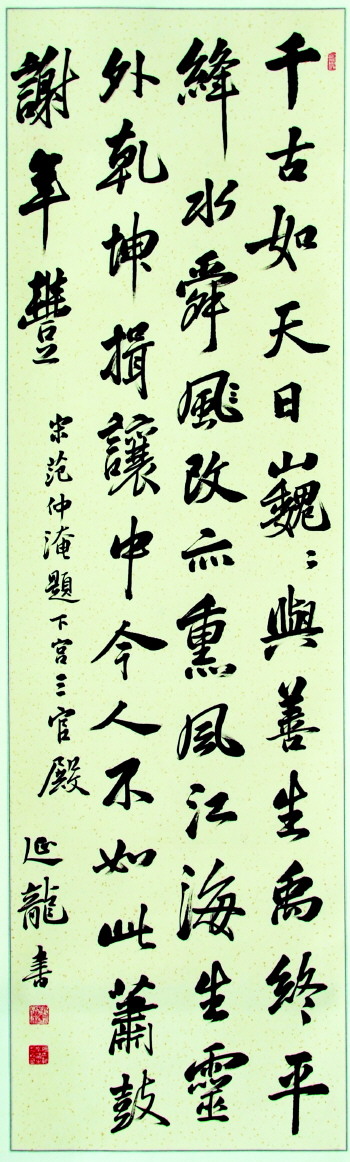 千古如天日巍〻與善生禹終平
絳水舜風改亦熏風江海生靈
外乾坤揖讓中今人不如此蕭鼓
謝年豐
宋范仲淹題下宮三官殿
延龍書